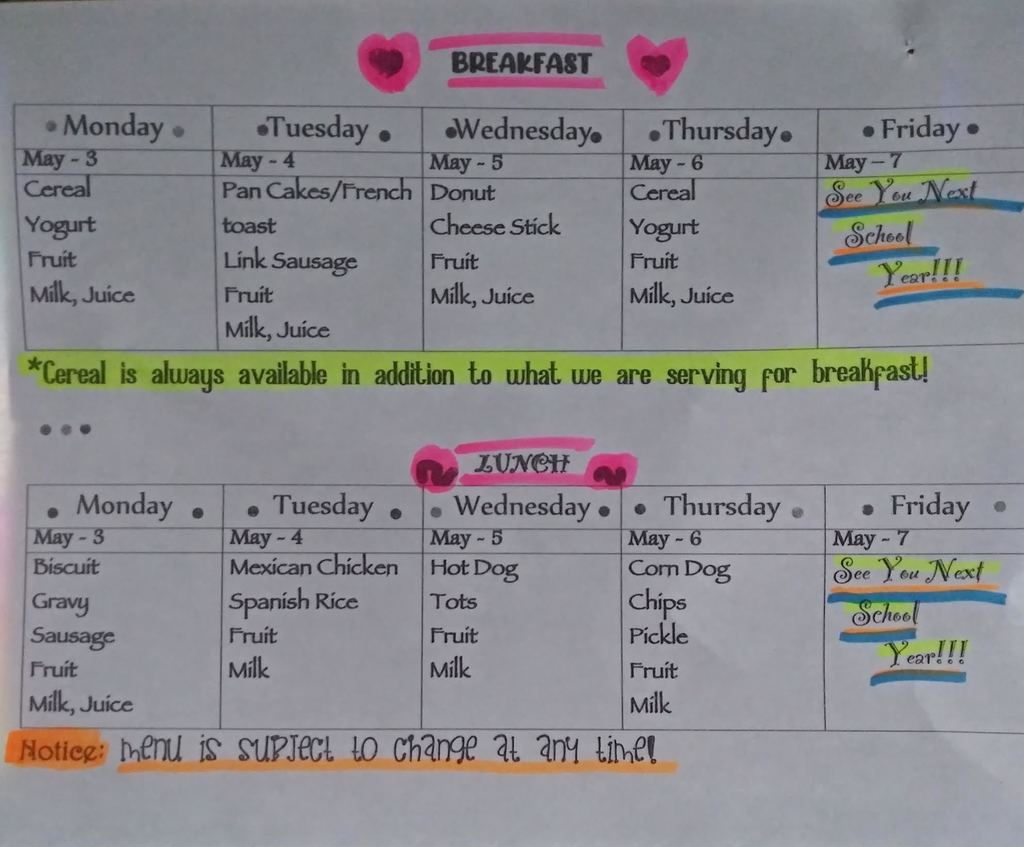 BREAKFAST
Monday Tuesday Wednesday Thursday Friday
May - 3 May - 4 May - 5 May - 6 May - 7
Cereal Pan Cakes/French Donut Cereal See You Next
Yogurt toast Cheese Stick Yogurt School
Fruit Link Sausage Fruit Fruit Year!!!
Milk, Juice Fruit Milk, Juice Milk, Juice
Milk, Juice
*Cereal is always available in addition to what we are serving for breakfast!
LUNCH
Monday Tuesday Wednesday Thursday Friday
May - 3 May - 4 May - 5 May - 6 May - 7
Biscuit Mexican Chicken Hot Dog Corn Dog See You Next
Gravy Spanish Rice Tots Chips School
Sausage Fruit Fruit Pickle Year!!!
Fruit Milk Milk Fruit
Milk, Juice Milk
Notice: menu is subject to change at any time!